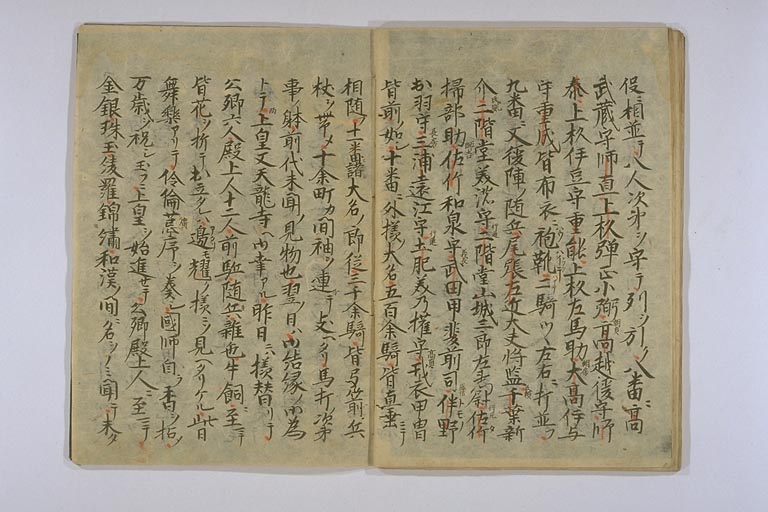 役ニ相並テ八人次第ヲ守テ引ツ引ク八番ニ高
武蔵守師直上杉弾正少弼高越後守師
泰上杉伊豆守重能上杉左馬助大高伊与
守重成皆布衣ニ袍靴ニテ二騎ツヽ左右ニ打並フ
九番ニハ又後陣ノ随兵尾張左近大夫将監千葉新
介二階堂美濃守二階堂山城三郎左衛門尉佐竹
掃部助佐竹和泉守武田甲斐前司伴野
出羽守三浦遠江守土肥美乃権守戎衣甲冑
皆前ノ如シ十番ニハ外様大名五百余騎皆直垂ニテ
相随十一番ニハ諸大名ノ郎従三千余騎皆弓箭兵
杖ヲ帯メ十余町カ間袖ヲ連テ支ヘタリ馬打ノ次第
事ノ躰前代未聞ノ見物也翌ノ日ハ御結縁ノ御為
トテ上皇又天龍寺ヘ御幸アル昨日ニハ様替リテ
公卿六人殿上人十二人前駈随兵雑色牛飼ニ至ニテ
皆花ヲ折テ出立タレハ邊モ耀ク様ニソ見ヘタリケル此日
舞楽アリテ伶倫莚序ヲ奏シ國師自ラ香ヲ拈シ
万歳ヲ祝シ玉フ上皇ヲ始進セテ公卿殿上人ニ至ニテ
金銀珠玉綾羅錦繍和漢ノ間ニ名ヲノミ聞テ未タ